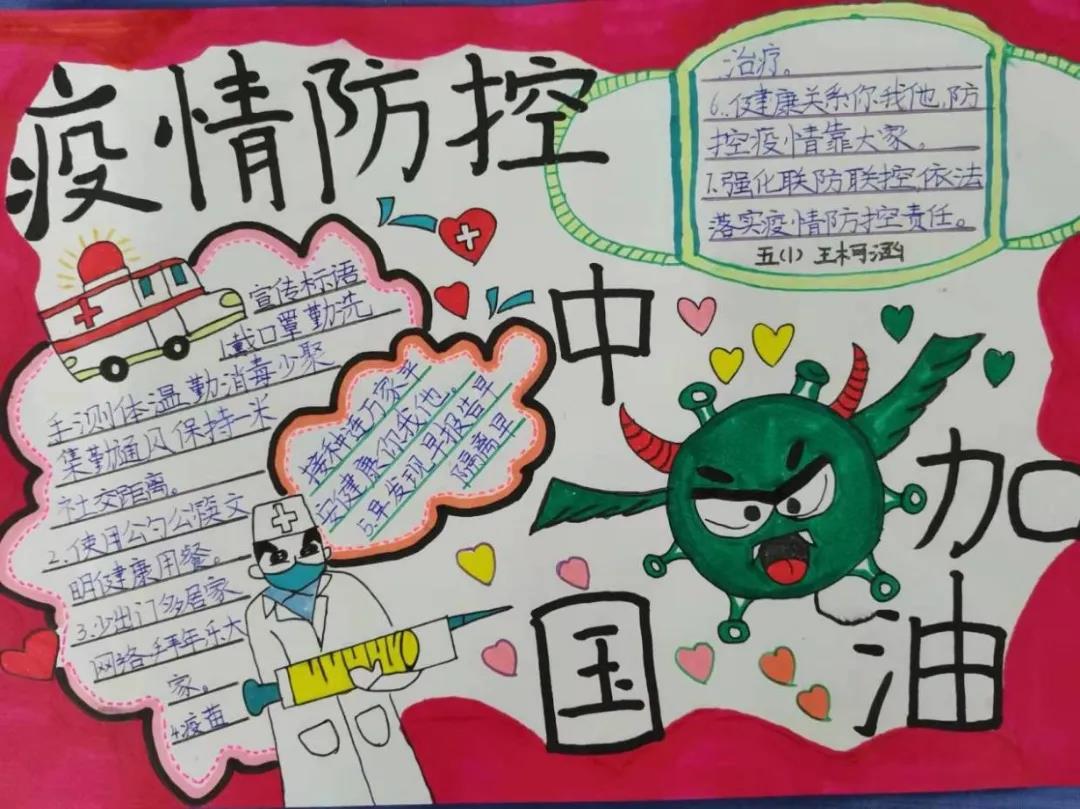 疫情防控
宣传标语
1.戴口罩勤洗
手测体温勤消毒少聚
集勤通风保持一米
社交距离。
2.使用公勺公筷文
明健康用餐。
3.少出门多居家
网络拜年乐大
家。
4.疫苗
接种连万家平
安健康你我他。
5.早发现早报告早
隔离早
治疗。
6.健康关系你我他,防
控疫情靠大家。
7.强化联防联控,依法
落实疫情防控责任。
五(1) 王柯涵
中
国
加
油